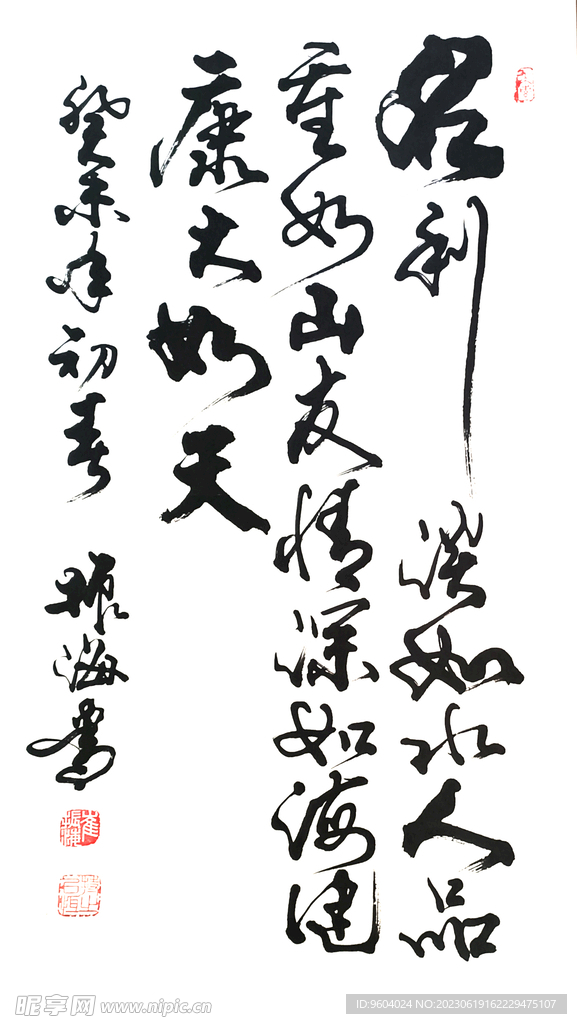 名利淡如水人品
重如山友情深如海健
康大如天
癸未年初春
振海书
崔振海
昵享网 www.nipic.cn
ID:9604024 NO:20230619162229475107